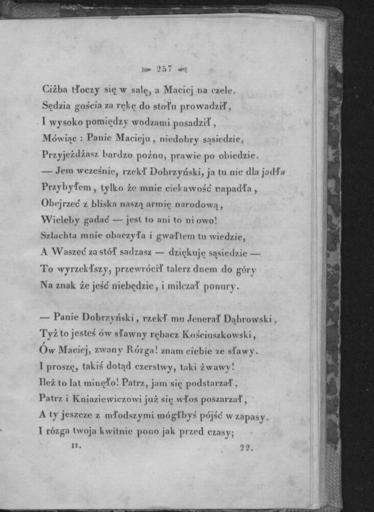 257
Ciżba tłoczy się w salę, a Maciej na czele.
Sędzia gościa za rękę do stołu prowadził,
I wysoko pomiędzy wodzami posadził,
Mówiąc : Panie Macieju, niedobry sąsiedzie,
Przyjeżdżasz bardzo poźno, prawie po obiedzie.
— Jem wcześnie, rzekł Dobrzyński, ja tu nie dla jadła
Przybyłem, tylko że mnie ciekawość napadła,
Obejrzeć z bliska naszą armię narodową,
Wieleby gadać — jest to ani to ni owo!
Szlachta mnie obaczyła i gwałtem tu wiedzie,
A Waszeć za stół sadzasz — dziękuję sąsiedzie —
To wyrzekłszy, przewrócił talerz dnem do góry
Na znak że jeść niebędzie, i milczał ponury.
— Panie Dobrzyński, rzekł mu Jenerał Dąbrowski,
Tyż to jesteś ów sławny rębacz Kościuszkowski,
Ów Maciej, zwany Rózga! znam ciebie ze sławy.
I proszę, takiś dotąd czerstwy, taki żwawy!
Ileż to lat minęło! Patrz, jam się podstarzał,
Patrz i Kniaziewiczowi już się włos poszarzał,
A ty jeszcze z młodszymi mógłbyś pójść w zapasy.
I rózga twoja kwitnie pono jak przed czasy;
II.
22.